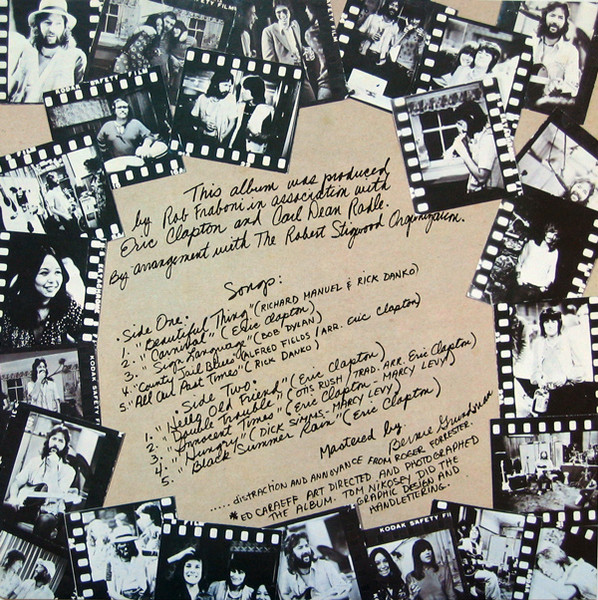 This album was produced
by Rob Fraboni in association with
Eric Clapton and Carl Dean Radle.
By arrangement with The Robert Stigwood Organization.
Songs:
• Side One •
1. "Beautiful Thing" (RICHARD MANUEL & RICK DANKO)
2. "Carnival" (Eric Clapton)
3. "Sign Language" (BOB DYLAN)
4. "County Jail Blues" (ALFRED FIELDS / ARR. Eric Clapton)
5. "All Our Past Times" (RICK DANKO)
• Side Two •
1. "Hello Old Friend" (Eric Clapton)
2. "Double Trouble" (OTIS RUSH / TRAD. ARR. Eric Clapton)
3. "Innocent Times" (Eric Clapton - MARCY LEVY)
4. "Hungry" (DICK SIMMS - MARCY LEVY)
5. "Black Summer Rain" (Eric Clapton)
Mastered by
Bernie Grundman
..... DISTRACTION AND ANNOYANCE FROM ROGER FORRESTER.
* ED CARAEFF ART DIRECTED AND PHOTOGRAPHED
THE ALBUM. TOM NIKOSEY DID THE
GRAPHIC DESIGN AND
HANDLETTERING.
KODAK SAFETY FILM
KODAK SAFETY FILM
KODAK SAFETY FIL
KODAK SAF